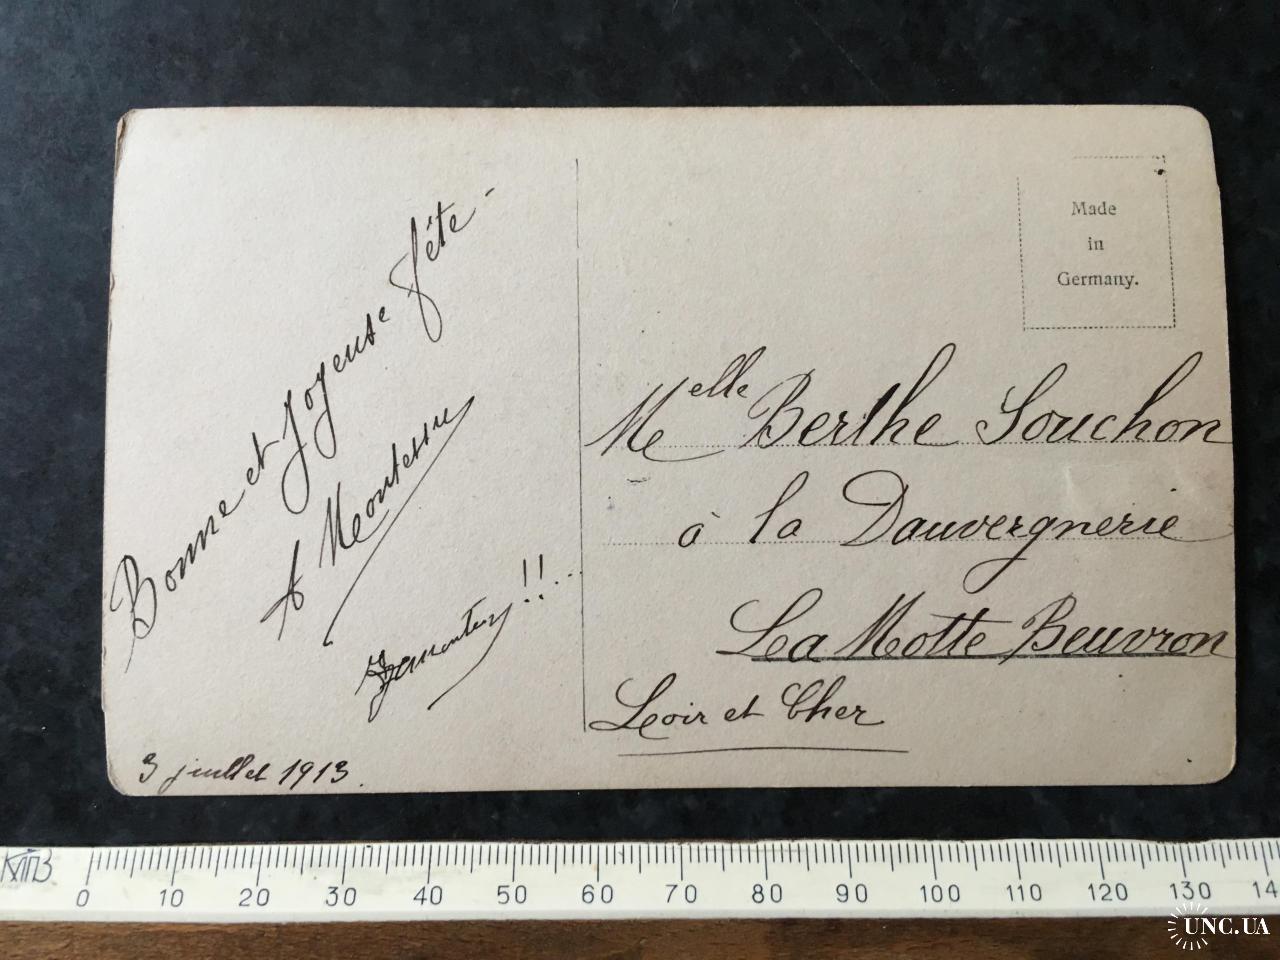 Bonne et Joyeuse fête -
A Montessu
!!...
3 juillet 1913.
Made
in
Germany.
Melle Berthe Souchon
à la Dauvergnerie
La Motte Beuvron
Loir et Cher
0 10 20 30 40 50 60 70 80 90 100 110 120 130 14
UNC.UA